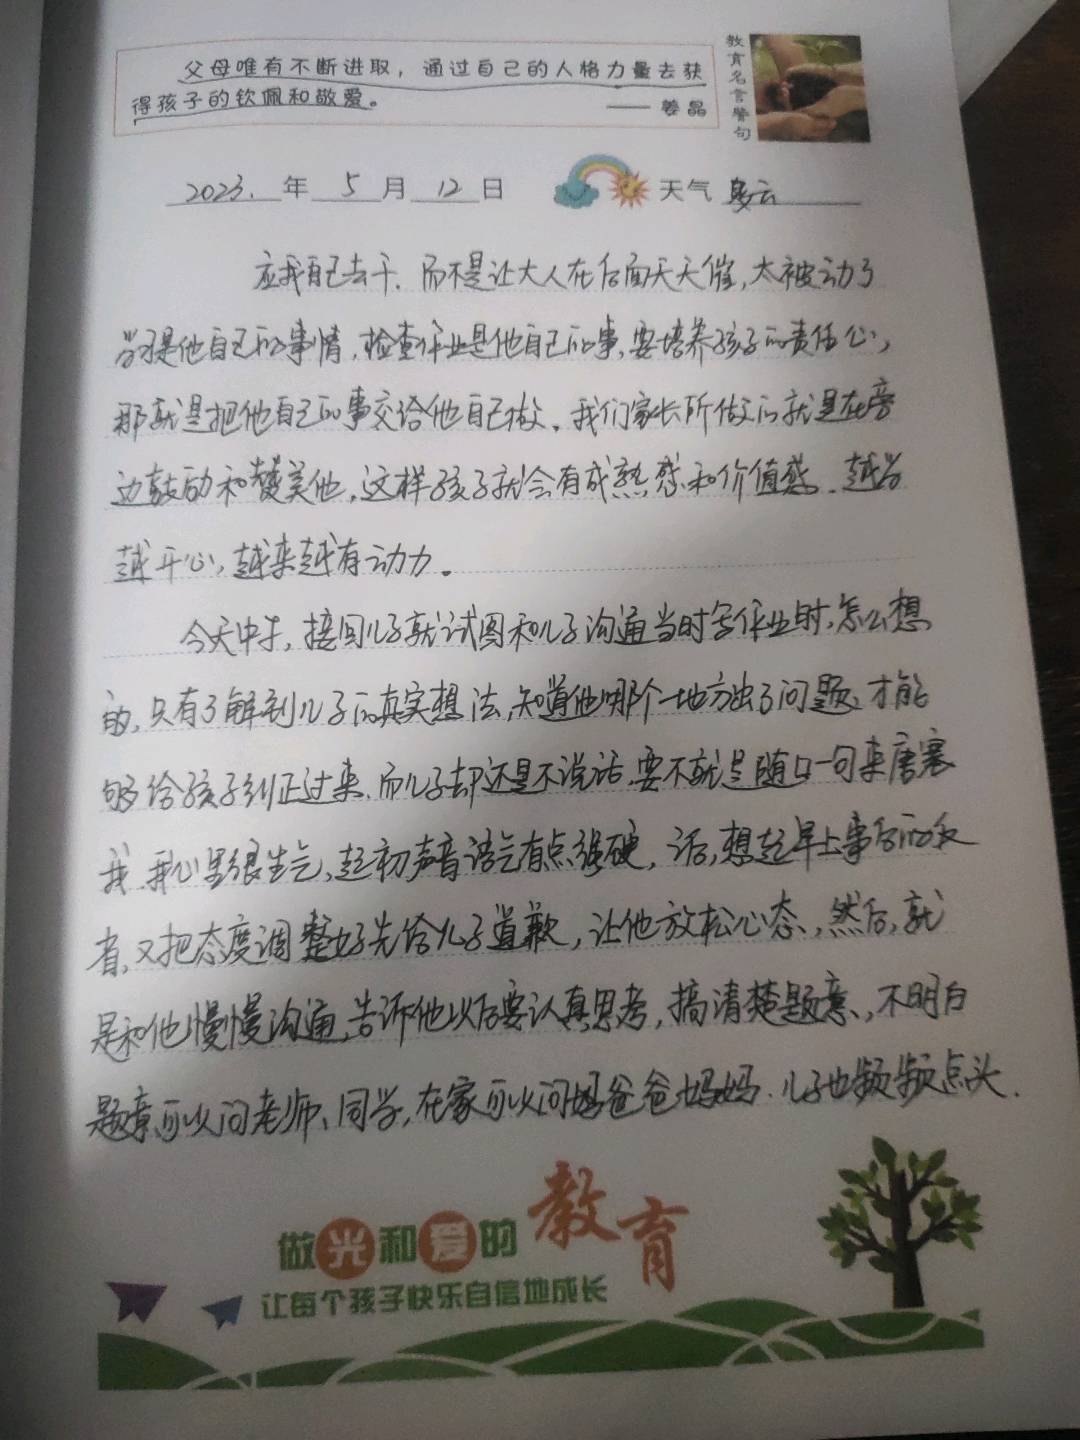 父母唯有不断进取，通过自己的人格力量去获
得孩子的钦佩和敬爱。
—— 姜晶
教育名言警句
2023. 年 5 月 12 日 天气 多云
应我自己去干、而不是让大人在后面天天催，太被动了
学习是他自己的事情，检查作业是他自己的事，要培养孩子的责任心，
那就是把他自己的事交给他自己做。我们家长所做的就是在旁
边鼓励和赞美他，这样孩子就会有成熟感和价值感、越学
越开心，越来越有动力。
今天中午，接回儿子就试图和儿子沟通当时写作业时，怎么想
的，只有了解到儿子的真实想法，知道他哪个地方出了问题，才能
够给孩子纠正过来，而儿子却还是不说话，要不就是随口一句来唐塞
我，我心里很生气，起初声音语气有点强硬，话，想起早上事后的
省，又把态度调整好先给儿子道歉，让他放松心态，然后，就
是和他慢慢沟通，告诉他以后要认真思考，搞清楚题意，不明白
题意可以问老师、同学，在家可以问爸爸妈妈．儿子也频频点头．
做光和爱的教育
让每个孩子快乐自信地成长